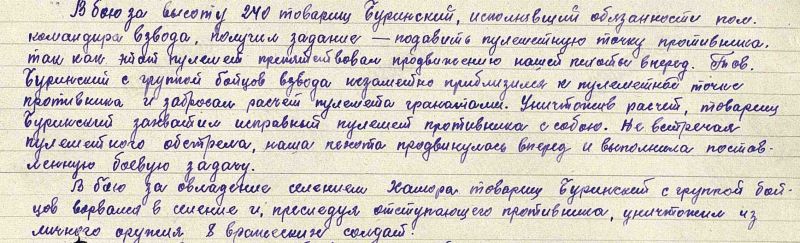 В бою за высоту 240 товарищ Буринский, исполнявший обязанности пом.
командира взвода, получил задание — подавить пулеметную точку противника,
так как этот пулемет препятствовал продвижению нашей пехоты вперед. Тов.
Буринский с группой бойцов взвода незаметно приблизился к пулеметной точке
противника и забросал расчет пулемета гранатами. Уничтожив расчет, товарищ
Буринский захватил исправный пулемет противника с собою. Не встречая
пулеметного обстрела, наша пехота продвинулась вперед и выполнила постав-
ленную боевую задачу.
В бою за овладение селением Хамора товарищ Буринский с группой бой-
цов ворвался в селение и, преследуя отступающего противника, уничтожил из
личного оружия 8 вражеских солдат.